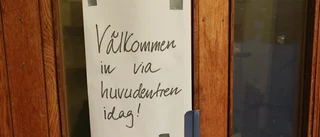 Välkommen
in via
huvudentren
idag!